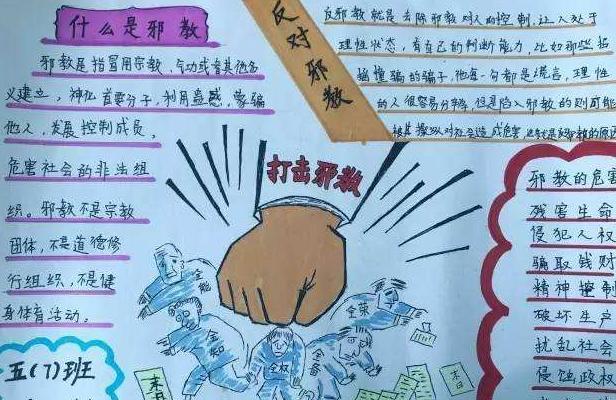 什么是邪教
邪教是指冒用宗教、气功或者其他名
义建立，神化首要分子，利用蛊惑，蒙骗
他人，发展控制成员，
危害社会的非法组
织。邪教不是宗教
团体，不是道德修
行组织，不是健
身体育活动。
五(7)班
反对邪教
反邪教就是去除邪教对人的控制，让人处于
理性状态，有自己的判断能力，比如那些招
摇撞骗的骗子，他每一句都是谎言，理性
的人很容易分辨，但是陷入邪教的则可能
被其操纵对社会造成危害
打击邪教
全能
全知
全权
全备
全荣
末日
末日
邪教的危害
残害生命
侵犯人权
骗取钱财
精神控制
破坏生产
扰乱社会
侵蚀政权